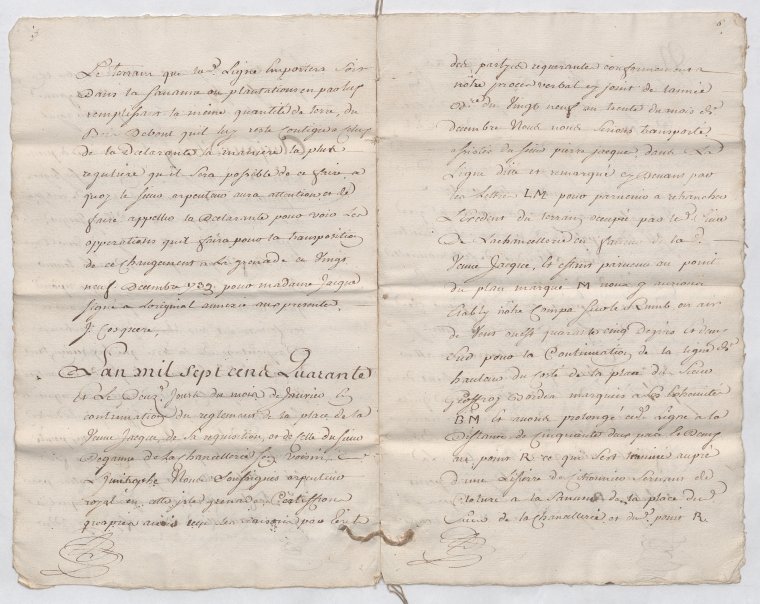 Le terrain que lad. Ligne Emportera soit
dans la savanna ou plantations en par luy
remplassant la meme quantité de terre, du
Bois Debout quil luy reste contigue a celuy
de la Declarante la maniere la plus
reguliere qu'il sera possible de ce faire, a
quoy le sieur arpenteur aura attention et de
faire appeller la Declarante pour voir les
opperations quil faira pour la transposition
de ce changement a La grenade ce Vingt
neuf Decembre 739 pour madame Jacque
signé a loriginal
J. Cosquere,
Lan mil sept cend Quarante
et Le Jour du mois de Janvier En
continuation du reglement de la place de la
Veuve Jacque, de sa requisition, et de celle du sieur
Degamme de La chancellerie son voisin
Limitrophe Nous Soussignes arpenteur
royal en cette isle grenade Certiffions
quapres avoir reçu les raisons pour Lors et
6
des partyes requerante conformement a
nôtre procez verbal cy joint de lannée
du Vingt neuf au trente du mois de
decembre Nous nous Serions transporté
assistés du sieur pierre jacque, dans La
Ligne dite et remarqué cy devant par
les Lettre LM pour parvenir a retrancher
Lexcedent du terrain occupé par le d. sieur
De Lachancellerie en faveur de la d.
Veuve Jacque, Et estant parvenu au point
du plan marqué M nous y aurions
Etably nôtre Compas sur le Rumb ou air
de Vent ouest quarante cinq Degrés et demi
Sud pour la Continuation de la ligne des
hauteurs du costé de la place du Sieur
Geoffroy Bordes marquée a Les Extremités
BM Et avons prolongé cette Ligne a la
Distance de Cinquante deux pas et Demy
au point R ce qui sest trouvé aupré
d'une Lisiere de Citronniers Servant de
Cloture a la Savanne de la place dud.
Sieur de la Chancellerie et dud. point R